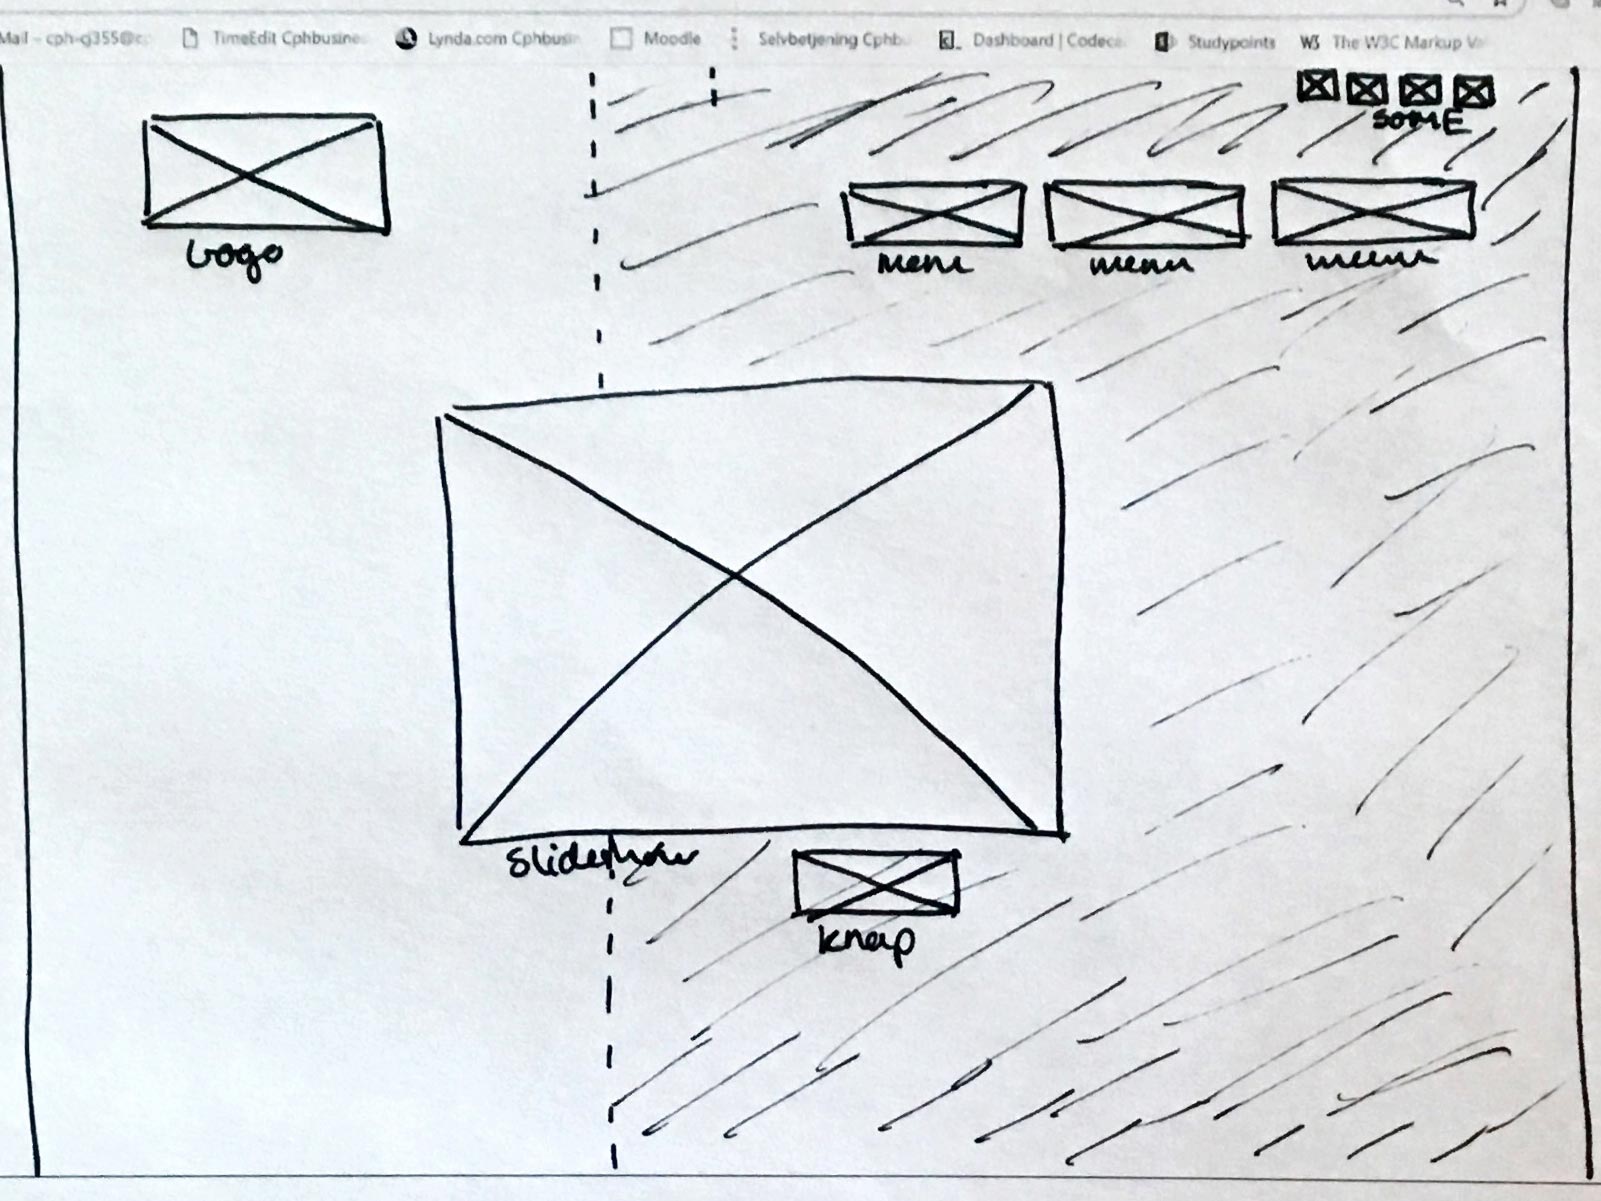 Mail - cph-cj355@c
TimeEdit Cphbusine
Lynda.com Cphbusin
Moodle
Selvbetjening Cphb
Dashboard | Codeca
Studypoints
W3 The W3C Markup Va
SOME
Logo
menu
menu
menu
Slideshow
knap